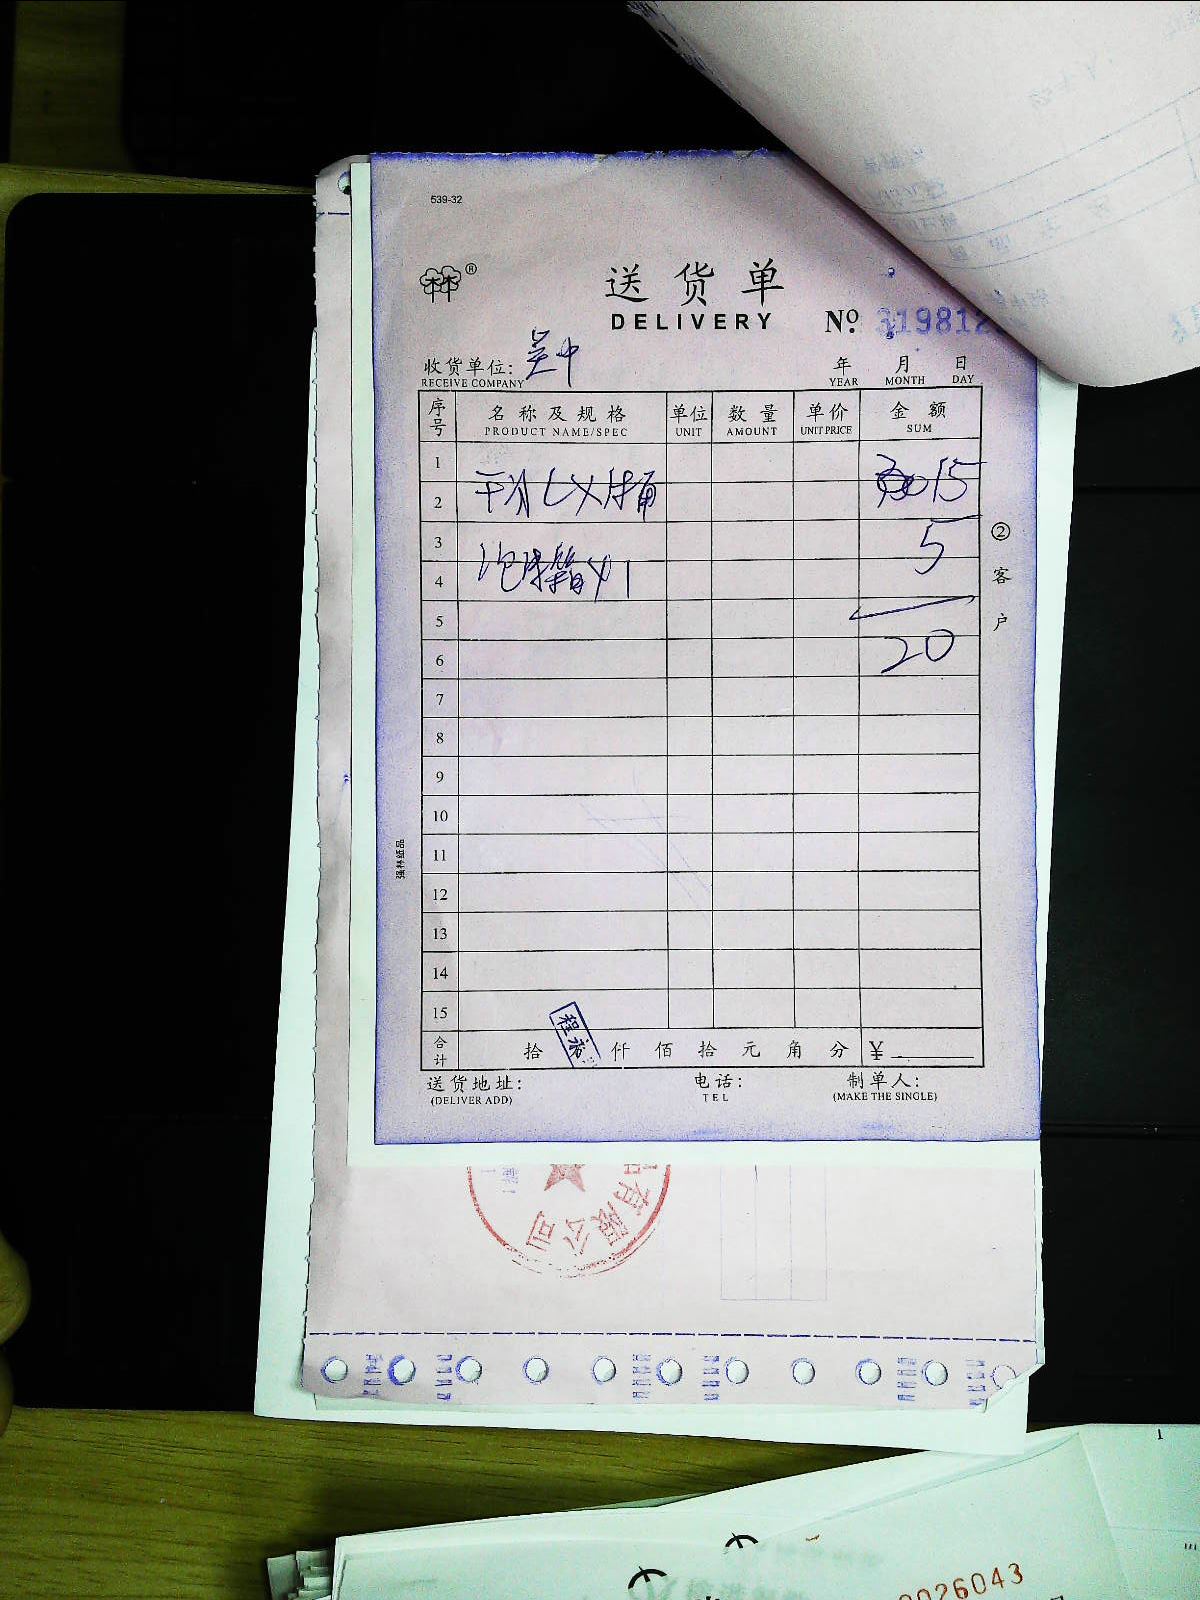 539-32
林林®
送货单
DELIVERY
No. 319812
收货单位: 吴中
RECEIVE COMPANY
年 月 日
YEAR MONTH DAY
序号 名称及规格 单位 数量 单价 金额
PRODUCT NAME/SPEC UNIT AMOUNT UNIT PRICE SUM
1
2 干冰 15
3 5
4 泡沫箱×1
5
6 20
7
8
9
10
11
12
13
14
15
② 客户
强林纸品
合计 拾 仟 佰 拾 元 角 分 ¥
送货地址: 电话: 制单人:
(DELIVER ADD) TEL (MAKE THE SINGLE)
有限公司
0026043